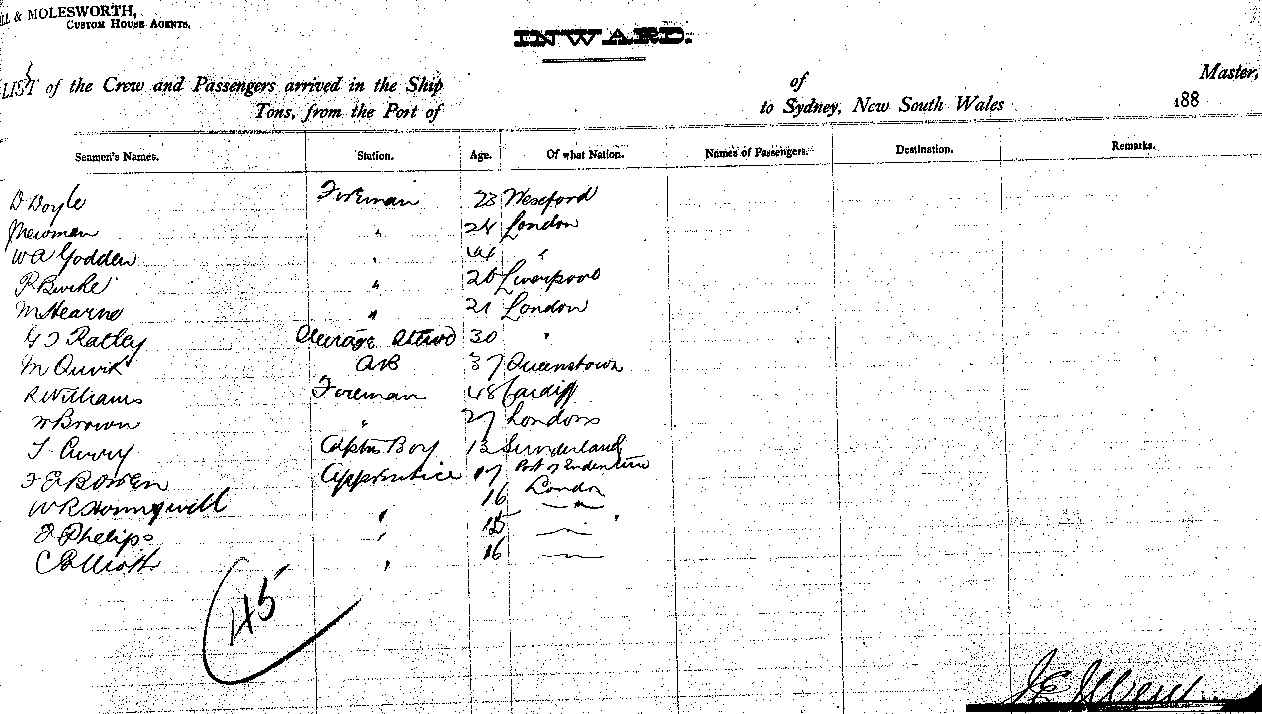 & MOLESWORTH,
CUSTOM HOUSE AGENTS.
INWARD.
LIST of the Crew and Passengers arrived in the Ship of Master,
Tons, from the Port of to Sydney, New South Wales 188
Seamen's Names. Station. Age. Of what Nation. Names of Passengers. Destination. Remarks.
D Doyle Fireman 23 Wexford
J Newman " 24 London
W A Godden " "
P Burke " 26 Liverpool
M Hearne " 21 London
G Ratley 30 "
M Quirk AB 37 Queenstown
R Williams Fireman 48 Cardiff
Brown " 27 London
T Curry Captns Boy 13 Sunderland
Port of Indenture
Bowen Apprentice 17 London
W R Honeywell " 16 "
Phelips " 15
C Elliott " 16
45